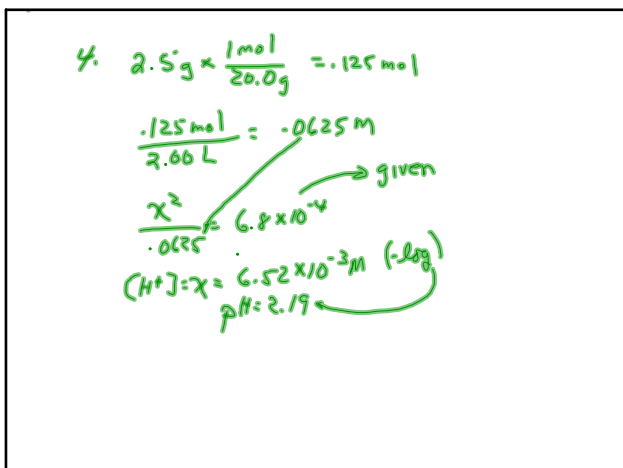 4. 2.5g × 1mol/20.0g = .125mol
.125mol/2.00 L = .0625 M
x²/.0625 = 6.8×10⁻⁴ → given
[H⁺]=x= 6.52×10⁻³M (-log)
pH=2.19